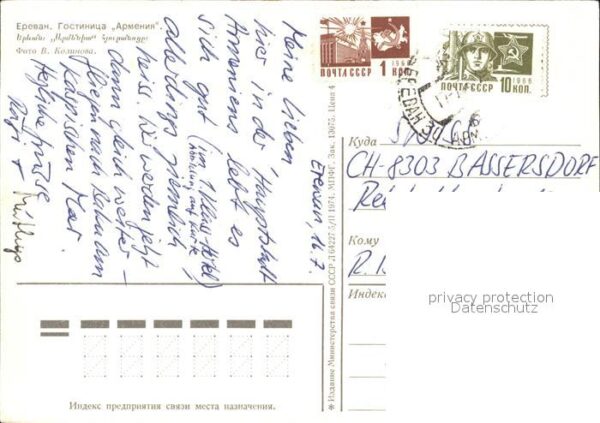 Ереван. Гостиница „Армения".
Երևան: „Արմենիա" հյուրանոցը:
Фото В. Колинова.
Erevan, 16.7.
Meine Lieben
hier in der Hauptstadt
Armeniens lebt es
sich gut (im 1. Klass-Hotel)
(Abbildung auf Karte)
allerdings ziemlich
heiss. Wir werden jetzt
dann gleich weiter-
fliegen nach Baku am
Kaspischen Meer.
Herzliche Grüsse
* Издание Министерства связи СССР. Л 64227 5/II 1974. МПФГ. Зак. 13075. Цена 4
ПОЧТА СССР 1 КОП.
1966
ПОЧТА СССР 10 КОП.
1966
ЕРЕВАН
Куда
CH-8303 BASSERSDORF
Кому
R.
Индекс
privacy protection
Datenschutz
Индекс предприятия связи места назначения.